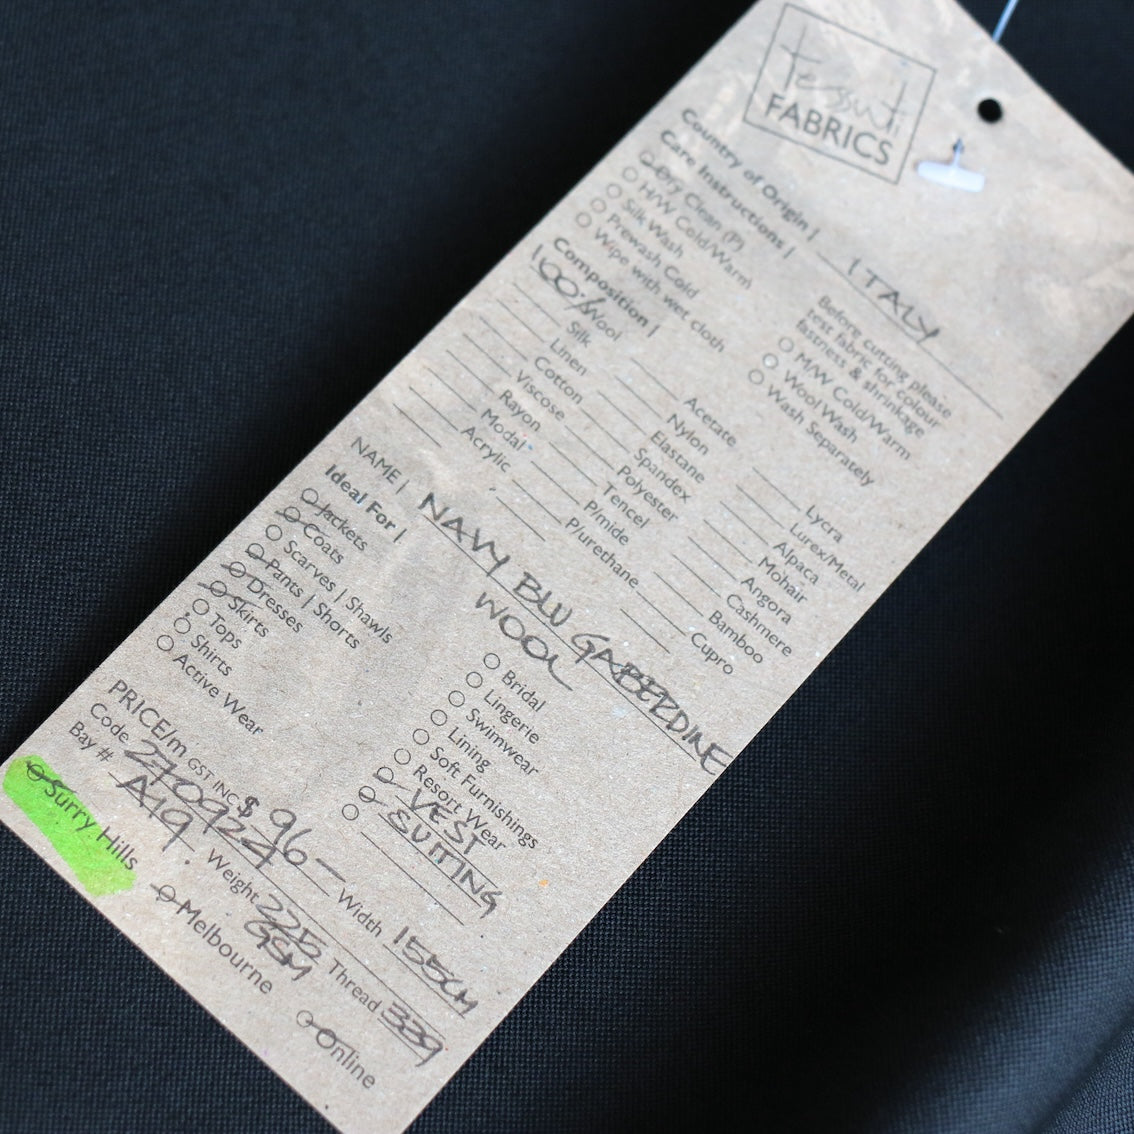 tessuti
FABRICS
Country of Origin | ITALY
Care Instructions |
Dry Clean (P)
H/W Cold/Warm
Silk Wash
Prewash Cold
Wipe with wet cloth
Before cutting please
test fabric for colour
fastness & shrinkage
M/W Cold/Warm
Wool Wash
Wash Separately
Composition |
100% Wool
Silk
Linen
Cotton
Viscose
Rayon
Modal
Acrylic
Acetate
Nylon
Elastane
Spandex
Polyester
Tencel
P/mide
P/urethane
Lycra
Lurex/Metal
Alpaca
Mohair
Angora
Cashmere
Bamboo
Cupro
NAME | NAVY BLU GABERDINE
WOOL
Ideal For |
Jackets
Coats
Scarves | Shawls
Pants | Shorts
Dresses
Skirts
Tops
Shirts
Active Wear
Bridal
Lingerie
Swimwear
Lining
Soft Furnishings
Resort Wear
VEST
SUITING
PRICE/m GST INC $ 96- Width 155CM
Code 2709224 Weight 225 GSM Thread 339
Bay # A19.
Surry Hills
Melbourne
Online